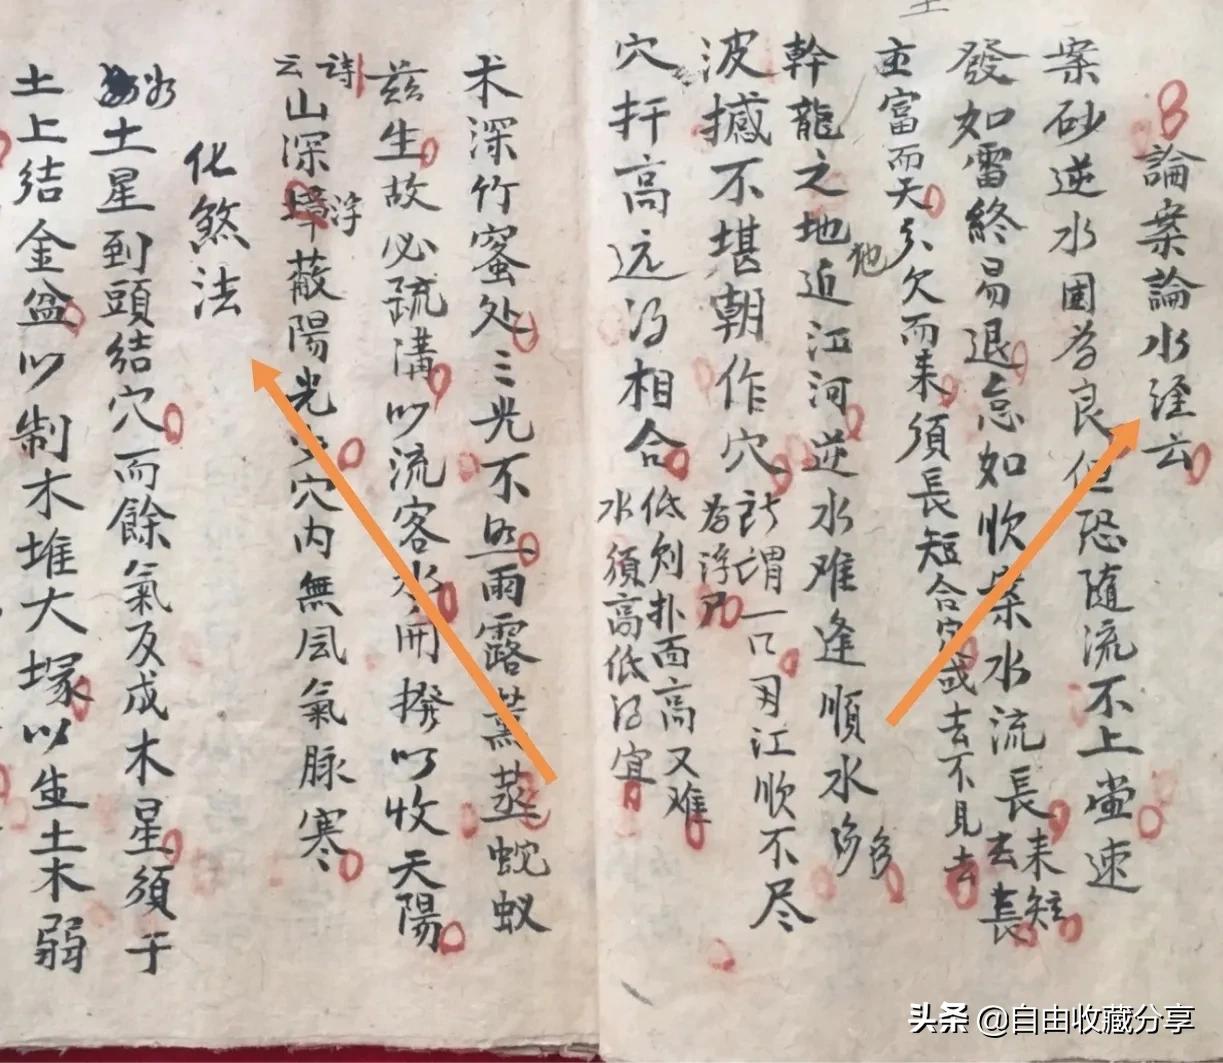 論案論水經云
案砂逆水固為良但恐隨流不上堂速
發如雷終易退怠如吹柴水流長来短去長
主富而夭欠而来須長短合穴或去不見去
幹龍之地近江河逆水难逢順水多
他
波撼不堪朝作穴所謂一口另江順不尽
為浮
穴扦高远得相合低则扑面高又难
水須高低得宜
术深竹蜜处三光不照雨露蒸蚁
兹生故必疏溝以流客水開撥以收天陽
詩云山深蔽陽光穴内無風氣脉寒
浮
化煞法
土星到頭結穴而餘氣及成木星須于
土上结金盆以制木堆大塚以生土木弱
头条 @自由收藏分享